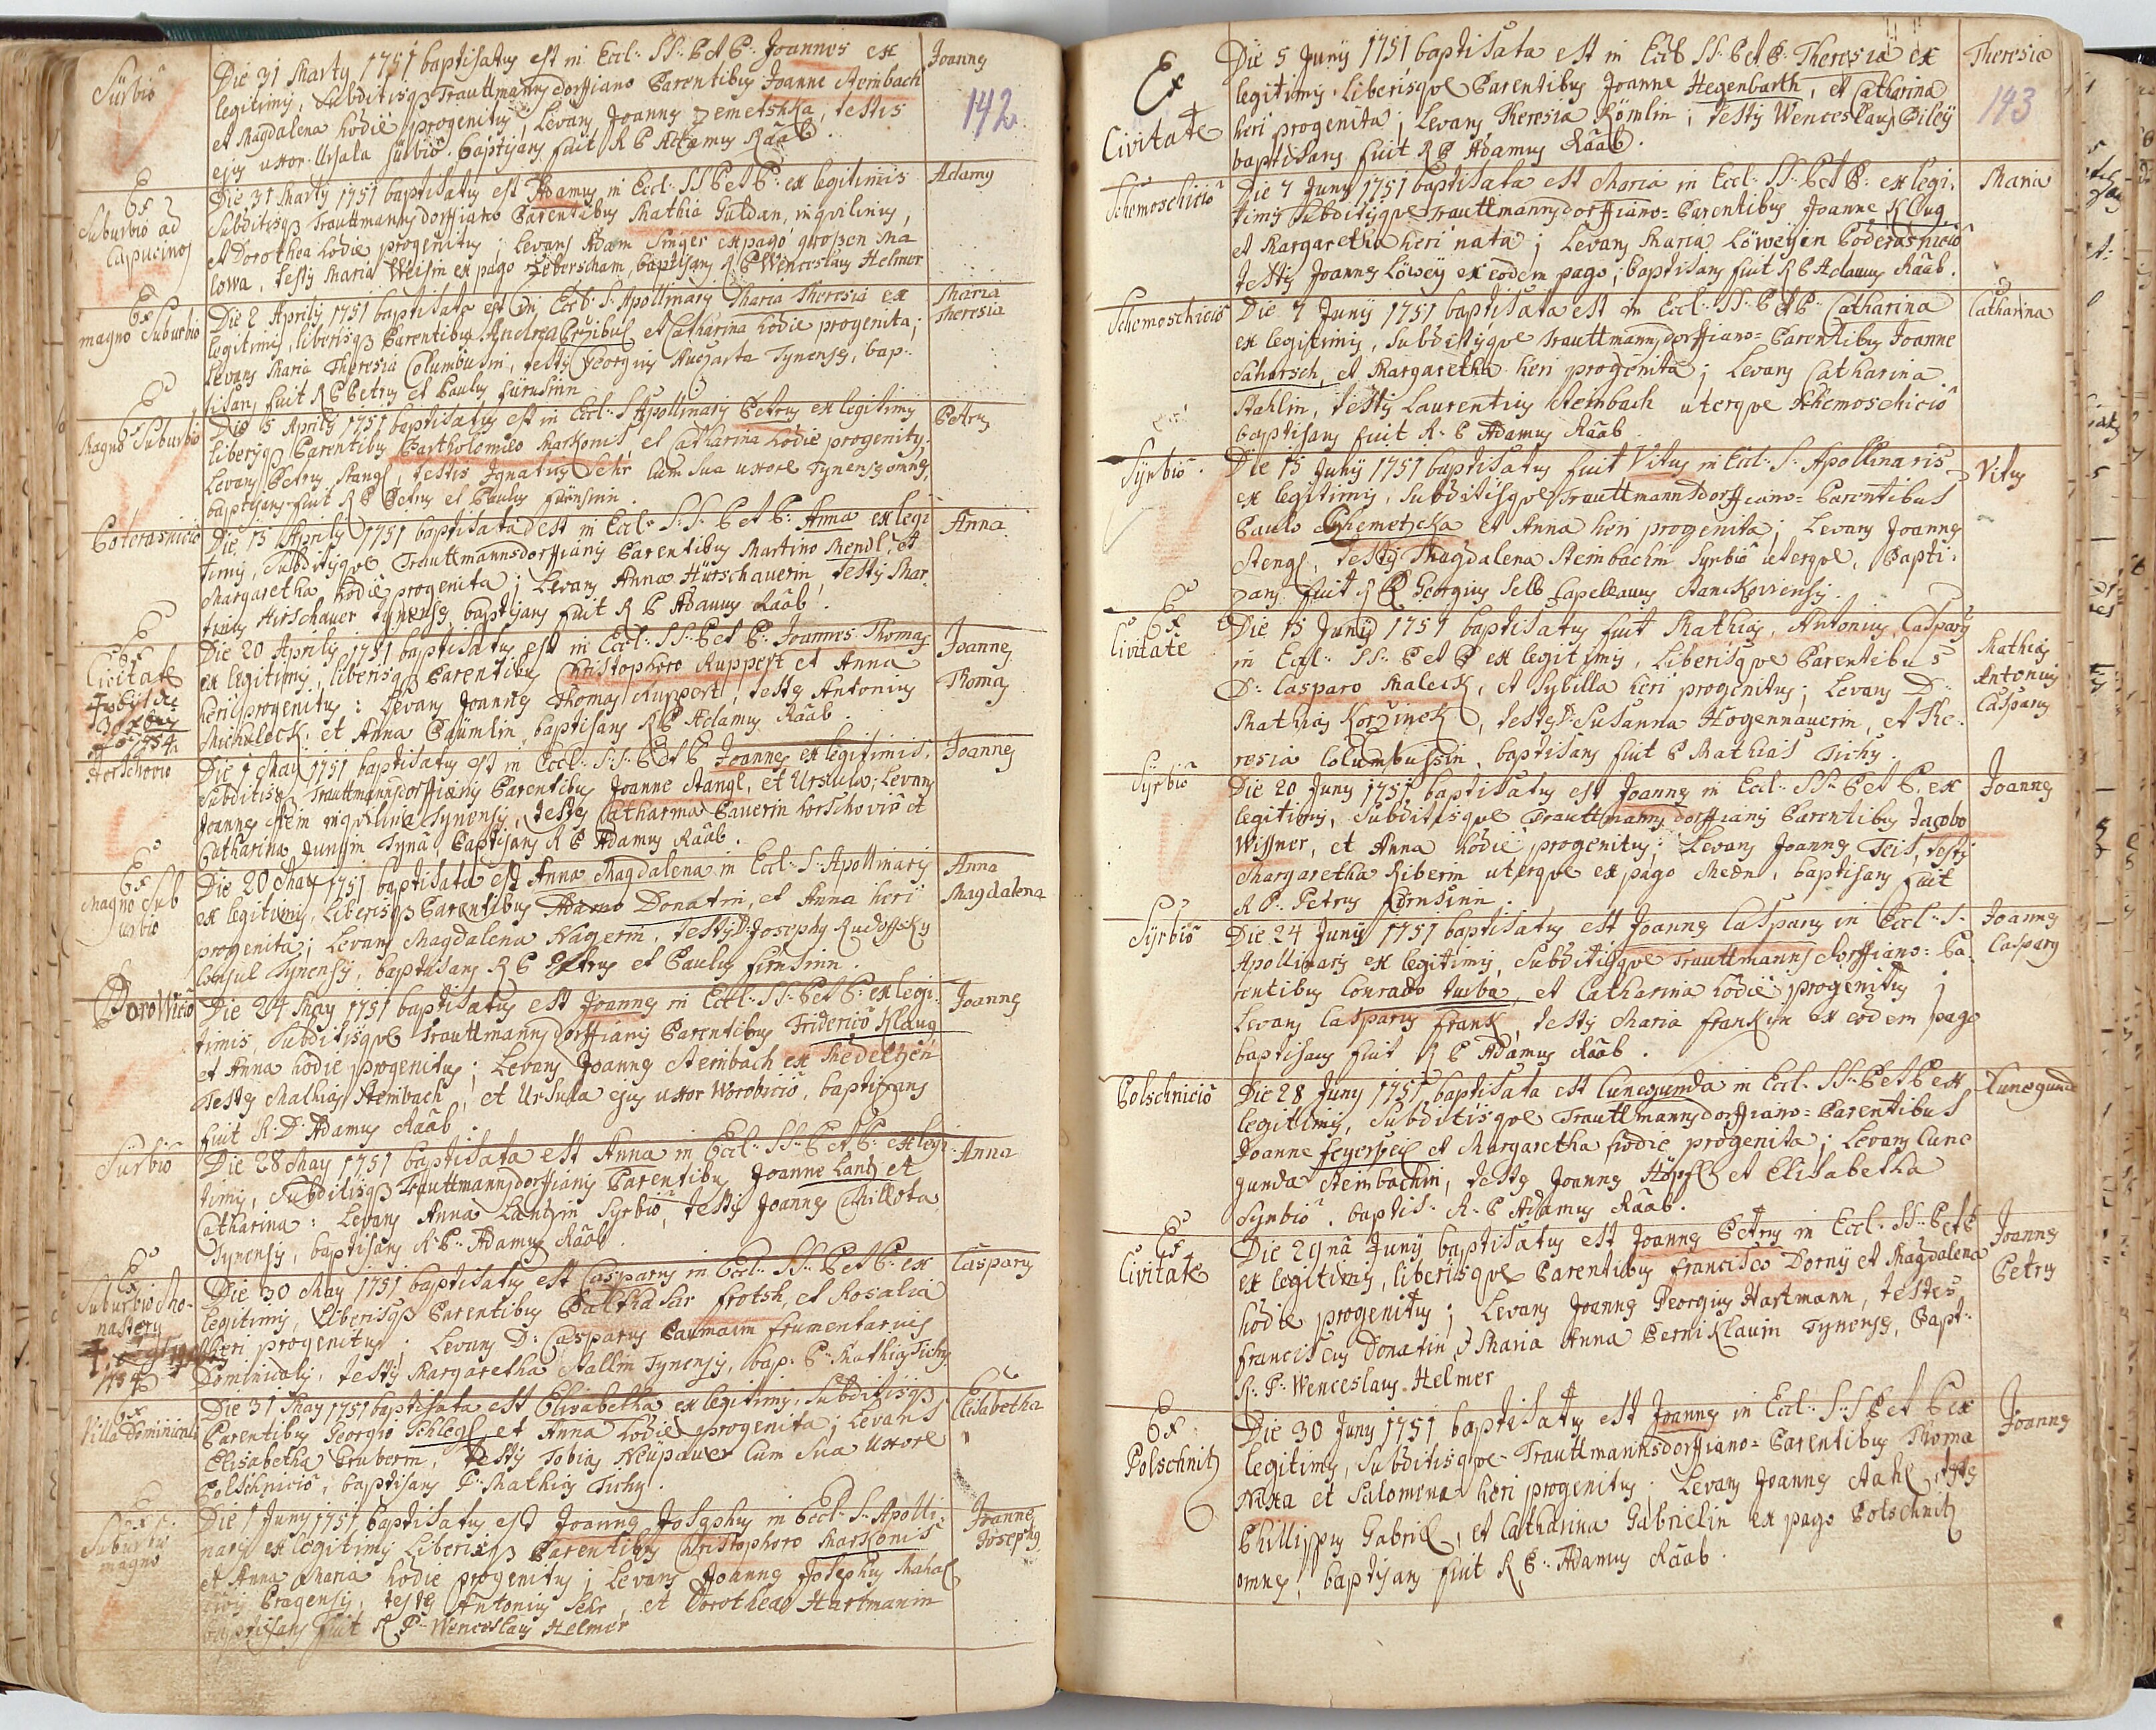 Sürbio
Die 31 Marty 1751 baptisatus est in Eccl: SS: P et P: Joannes ex
legitimis, Subditisq Trauttmannsdorffiano Parentibus Joanne Steinbach
et Magdalena hodie progenitus; Levans Joannes Zemetshka, testis
ejus uxor Ursula Sürbio. baptisans fuit R P Adamus Räab.
Joannes
142
Ex
Suburbio ad
Capucinos
Die 31 Marty 1751 baptisatus est Adamus in Eccl: SS P et P: ex legitimis
Subditisq Trauttmannsdorffiano Parentibus Mathia Guldan, inquilinus,
et Dorothea hodie progenitus; Levans Adam Singer ex pago großen Ma
lowa, testis Maria Weisin ex pago Zeberscham, baptisans R P Wenceslaus Helmer
Adamus
Ex
magno Suburbio
Die 2 Aprilis 1751 baptisata est in Eccl: S: Apollinaris Maria Theresia ex
legitimis, liberisq Parentibus Andrea Przibul et Catharina hodie progenita;
Levans Maria Theresia Columbusin, testis Georgius Tynensis, bap:
tisans fuit R P Petrus et Paulus Fürnsinn
Maria
Theresia
Ex
Magno Suburbio
Die 15 Aprilis 1751 baptisatus est in Eccl: S Apollinaris Petrus ex legitimis
liberisq Parentibus Bartholomæo Markonis, et Catharina hodie progenitus;
Levans Petrus Stangl, testis Ignatius Sehr cum sua uxore Tynensis omnes,
baptisans fuit R P Petrus et Paulus Fürnsinn.
Petrus
Poterasnicio
Die 15 Aprilis 1751 baptisata est in Eccl: S:S: P et P: Anna ex legi
timis, Subditisque Trauttmannsdorffianis Parentibus Martino Mendl, et
Margaretha hodie progenita; Levans Anna Hürschauerin, testis Mar:
tinus Hirschauer Tynensis, baptisans fuit R P Adamus Räab.
Anna
Ex
Civitate
Die 20 Aprilis 1751 baptisatus est in Eccl: SS: P et P: Joannes Thomas
ex legitimis, liberisq Parentibus Christophoro Ruppert et Anna
heri progenitus: Levans Joannes Thomas Ruppert, testes Antonius
Michaleck, et Anna Päumlin, baptisans R P Adamus Räab.
Joannes
Thomas
Horschovio
Die 1 May 1751 baptisatus est in Eccl: S:S: P et P Joannes ex legitimis,
Subditisq Trauttmannsdorffianis Parentibus Joanne Stangl, et Ursula; Levans
Joannes inquilinus Tynensis, testes Catharina Pauerin Horschovio et
Catharina Tyna, baptisans R P Adamus Räab.
Joannes
Ex
Magno Sub
urbio
Die 20 May 1751 baptisata est Anna Magdalena in Eccl: S: Apollinaris
ex legitimis, liberisq Parentibus Adamo Donatin, et Anna heri
progenita; Levans Magdalena Nagerin, testis D: Josephus Rudoffsky
Consul Tynensis, baptisans R P Petrus et Paulus Firnsinn.
Anna
Magdalena
Worowicio
Die 24 May 1751 baptisatus est Joannes in Eccl: SS: P et P: ex legi:
timis, Subditisque Trauttmannsdorffianis Parentibus Friderico Klaug
et Anna hodie progenitus; Levans Joannes Steinbach ex Medelzen
Testes Mathias Steinbach, et Ursula ejus uxor Worobicio, baptisans
fuit R: D: Adamus Räab.
Joannes
Sürbio
Die 28 May 1751 baptisata est Anna in Eccl: SS: P et P: ex legi:
timis, Subditisq Trauttmannsdorffianis Parentibus Joanne Lantz et
Catharina: Levans Anna Lantzin Syrbio, testis Joannes Chillota
Tynensis, baptisans R: P: Adamus Räab.
Anna
Ex
Suburbio Mo-
nastery
1754
Die 30 May 1751 baptisatus est Casparus in Eccl: SS: P et P: ex
legitimis, liberisq Parentibus Balthasar Frotsh, et Rosalia
heri progenitus; Levans D: Casparus Baumann frumentarius
Dominicalis, testis Margaretha Stallin Tynensis, bap: P: Mathias Tichy
Casparus
Ex
Villa Dominicali
Die 31 May 1751 baptisata est Elisabetha ex legitimis, Subditisq
Parentibus Georgio Schlegl, et Anna hodie progenita; Levans
Elisabetha Gruberin, testis Tobias Neüpauer cum sua uxore
Polschnicio, baptisans P: Mathias Tichy.
Elisabetha
Ex
Suburbio
magno
Die 1 Juny 1751 baptisatus est Joannes Josephus in Eccl: S: Apolli:
naris ex legitimis liberisq Parentibus Christophoro Markonis
et Anna Maria hodie progenitus; Levans Joannes Josephus Mahal
civis Pragensis, testes Antonius Sehr, et Dorothea Hartmanin
baptisans fuit R P: Wenceslaus Helmer
Joannes
Josephus
Ex
Civitate
Die 5 Juny 1751 baptisata est in Eccl SS: P et P: Theresia ex
legitimis liberisque Parentibus Joanne Hegenbarth, et Catharina
heri progenita; Levans Theresia Römlin, testis Wenceslaus Piley
baptisans fuit R P Adamus Räab.
Theresia
143
Schemoschicio
Die 7 Juny 1751 baptisata est Maria in Eccl: SS: P et P: ex legi:
timis Subditisque Trauttmannsdorffiano= Parentibus Joanne Klug
et Margaretha heri nata; Levans Maria Löweyin Poderasnicio
testis Joannes Löwey ex eodem pago; baptisans fuit R P Adamus Räab.
Maria
Schemoschicio
Die 7 Juny 1751 baptisata est in Eccl: SS: P et P: Catharina
ex legitimis, Subditisque Trauttmannsdorffiano= Parentibus Joanne
Saharsch, et Margaretha heri progenita; Levans Catharina
Stahlin, testis Laurentius Steinbach uterque Schemoschicio
baptisans fuit R: P Adamus Räab
Catharina
Syrbio.
Die 15 Juny 1751 baptisatus fuit Vitus in Eccl: S: Apollinaris
ex legitimis, Subditisque Trauttmannsdorffiano= Parentibus
Paulo et Anna heri progenita; Levans Joannes
Stengl, testis Magdalena Steinbachin Syrbio uterque, Bapti:
zans fuit R P Georgius Selb Capellanus Stankoviensis.
Vitus
Ex
Civitate
Die 15 Juny 1751 baptisatus fuit Mathias, Antonius, Casparus
in Eccl: SS: P et P ex legitimis, Liberisque Parentibus
D: Casparo Maleck, et Sybilla heri progenitus; Levans D:
Mathias Korzinek, testes Susanna Hogennauerin, et The:
resia Columbussin, baptisans fuit P Mathias Tichy.
Mathias
Antonius
Casparus
Syrbio
Die 20 Juny 1751 baptisatus est Joannes in Eccl: SS: P et P: ex
legitimis, Subditisque Trauttmannsdorffianis Parentibus Jacobo
Wissner, et Anna hodie progenitus; Levans Joannes Teis, testis
Margaretha Riberin uterque ex pago Meön, baptisans fuit
R P: Petrus Förnsinn.
Joannes
Syrbio
Die 24 Juny 1751 baptisatus est Joannes Casparus in Eccl: S:
Apollinaris ex legitimis, Subditisque Trauttmannsdorffiano= Pa:
rentibus Conrado Turba, et Catharina hodie progenitus;
Levans Casparus Frank, testis Maria Frankin ex eodem pago
baptisans fuit R P Adamus Räab.
Joannes
Casparus
Polschnicio
Die 28 Juny 1751 baptisata est Cunegunda in Eccl: SS: P et P ex
legitimis, Subditisque Trauttmannsdorffiano= Parentibus
Joanne Feyerpeil et Margaretha hodie progenita; Levans Cune
gunda Steinbachin, testes Joannes Höpfl et Elisabetha
Syrbio, baptis: R: P Adamus Räab.
Cunegunda
Ex
Civitate
Die 29na Juny baptisatus est Joannes Petrus in Eccl: SS: P et P
ex legitimis, liberisque Parentibus Francisco Dorny et Magdalena
hodie progenitus; Levans Joannes Georgius Hartmann, testes
Franciscus Donatin, et Maria Anna Perniklauin Tynensis, Bapt:
R: P: Wenceslaus Helmer
Joannes
Petrus
Ex
Polschnitz
Die 30 Juny 1751 baptisatus est Joannes in Eccl: S:S P et P ex
legitimis, Subditisque Trauttmannsdorffiano= Parentibus Thoma
Nixta et Salomena heri progenitus. Levans Joannes Stahl, testes
Phillippus Gabriel, et Catharina Gabrielin ex pago Polschnitz
omnes, baptisans fuit R P: Adamus Räab.
Joannes